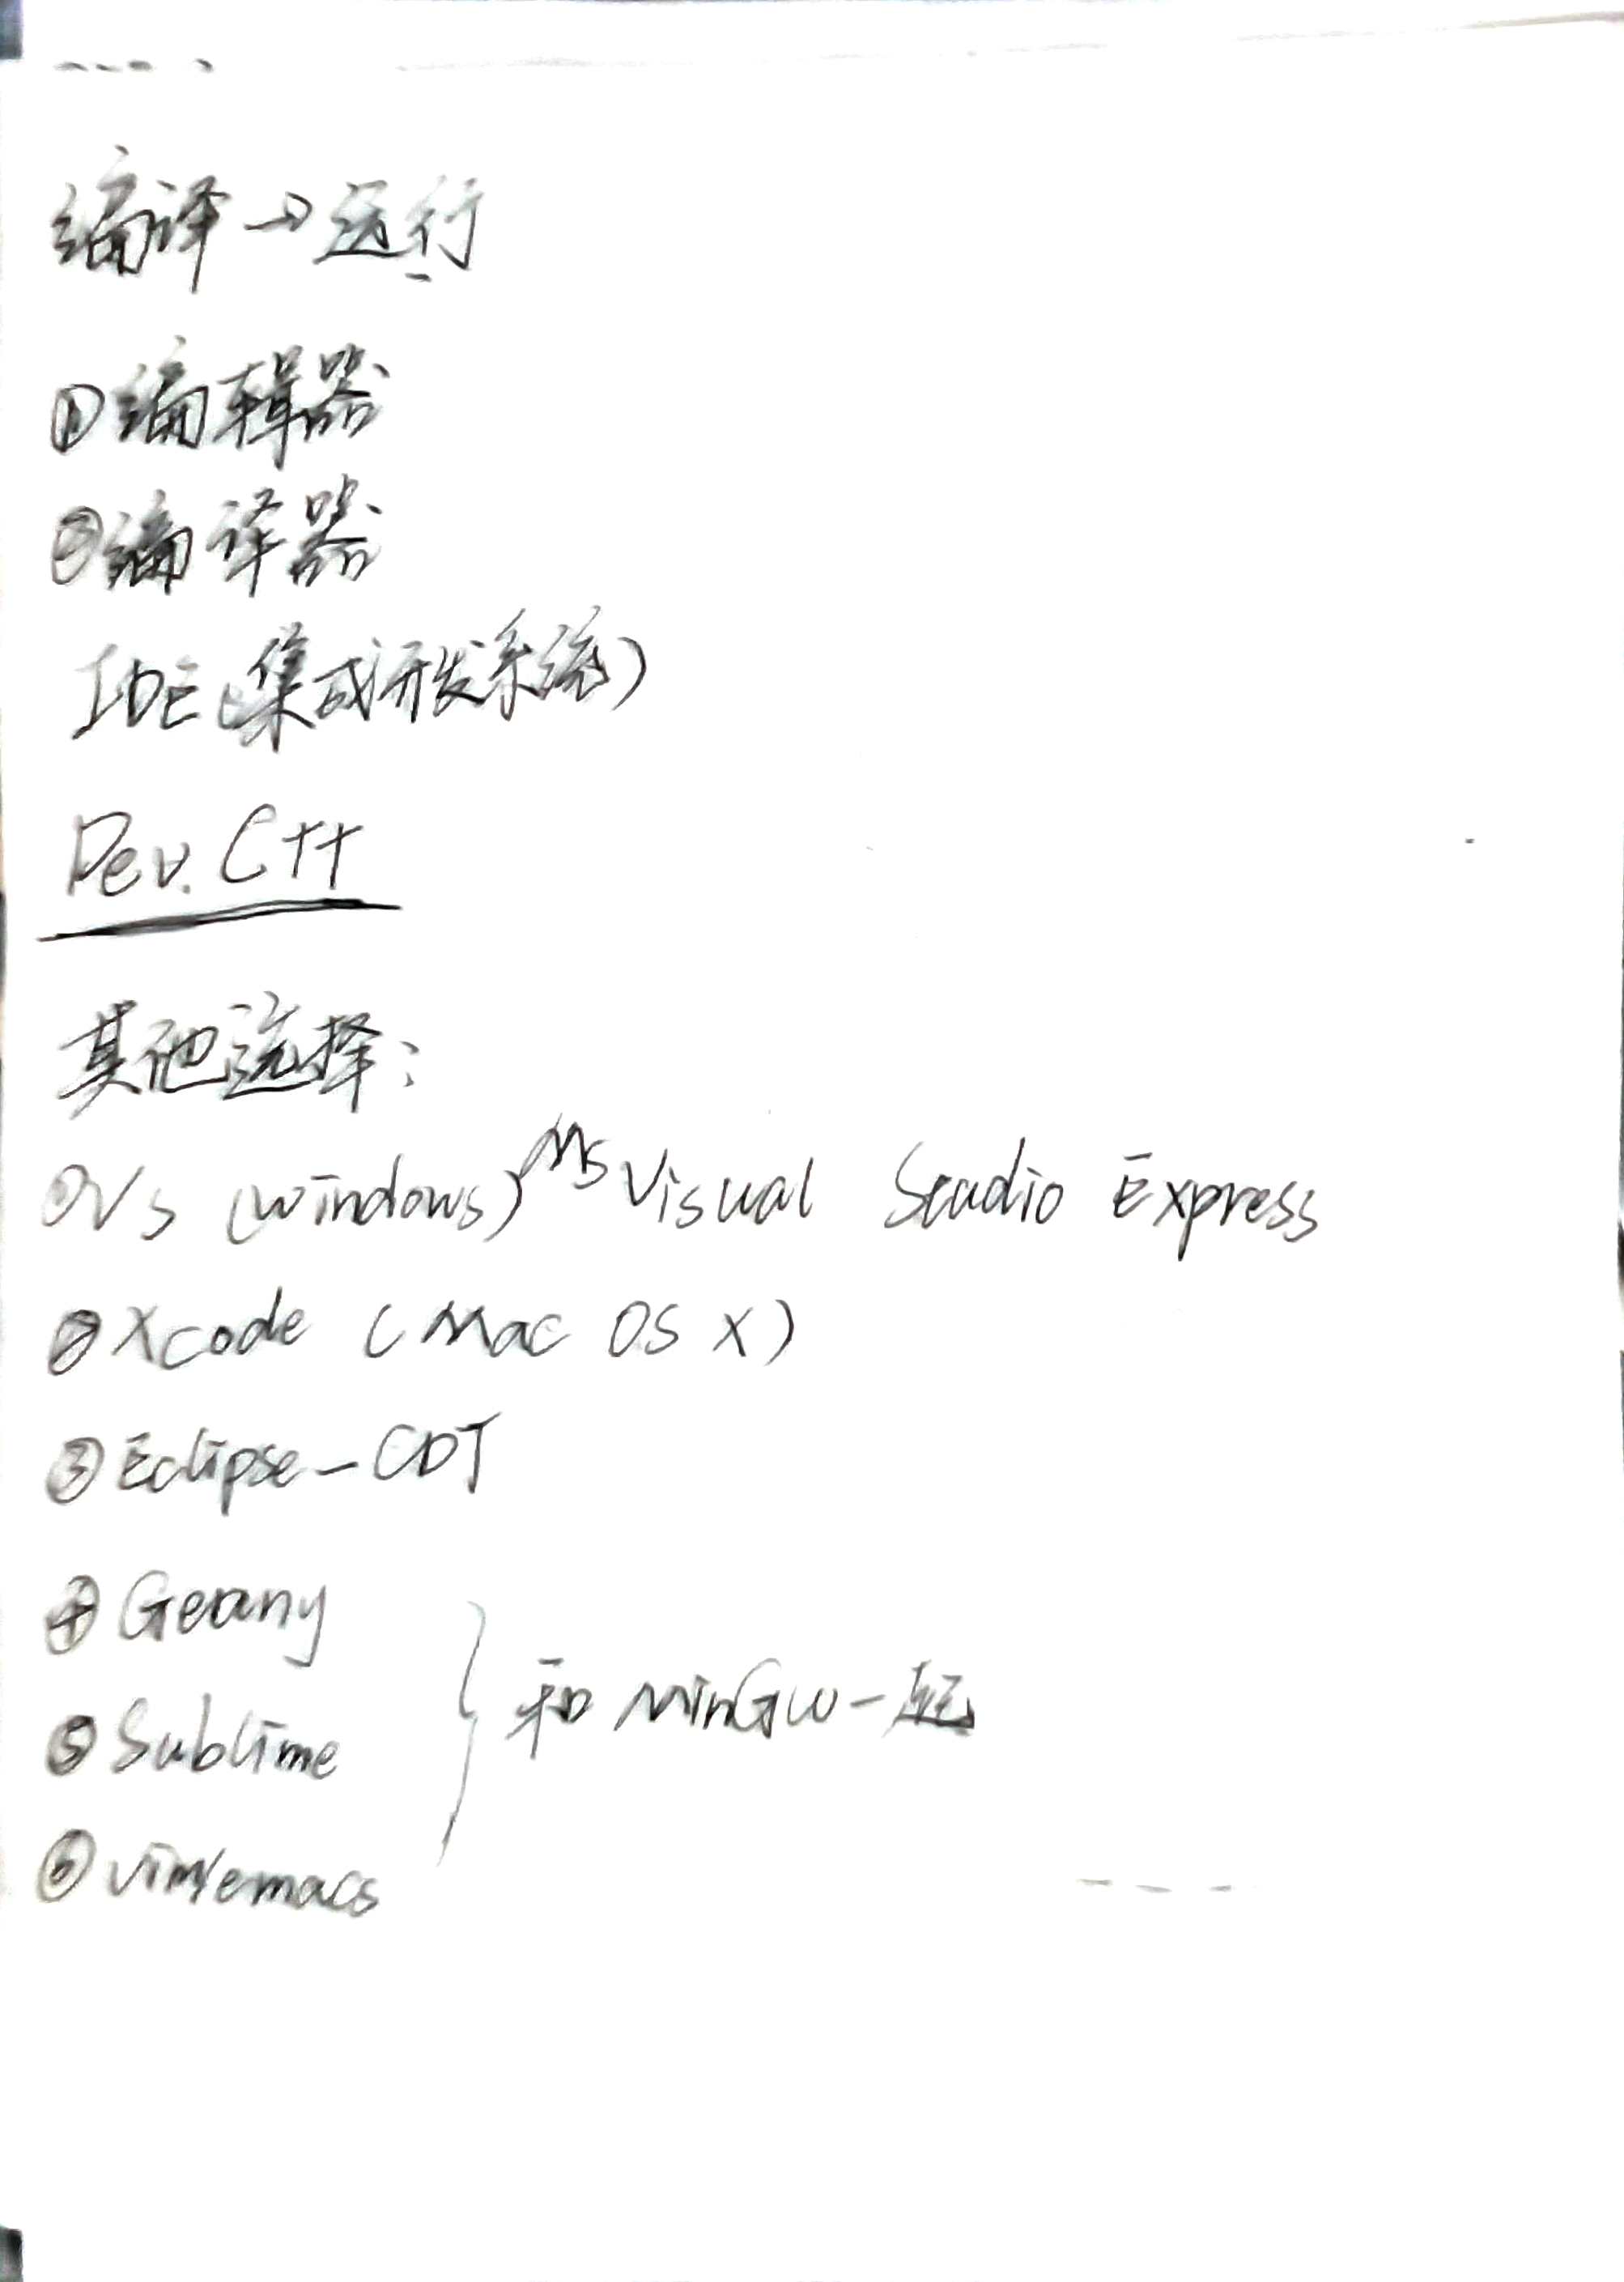 编译→运行
①编辑器
②编译器
IDE(集成开发系统)
Dev.C++
其他选择:
①VS (windows) MS Visual Studio Express
②Xcode (Mac OS X)
③Eclipse-CDT
④Geany
⑤Sublime
和MinGW一起
⑥vim/emacs